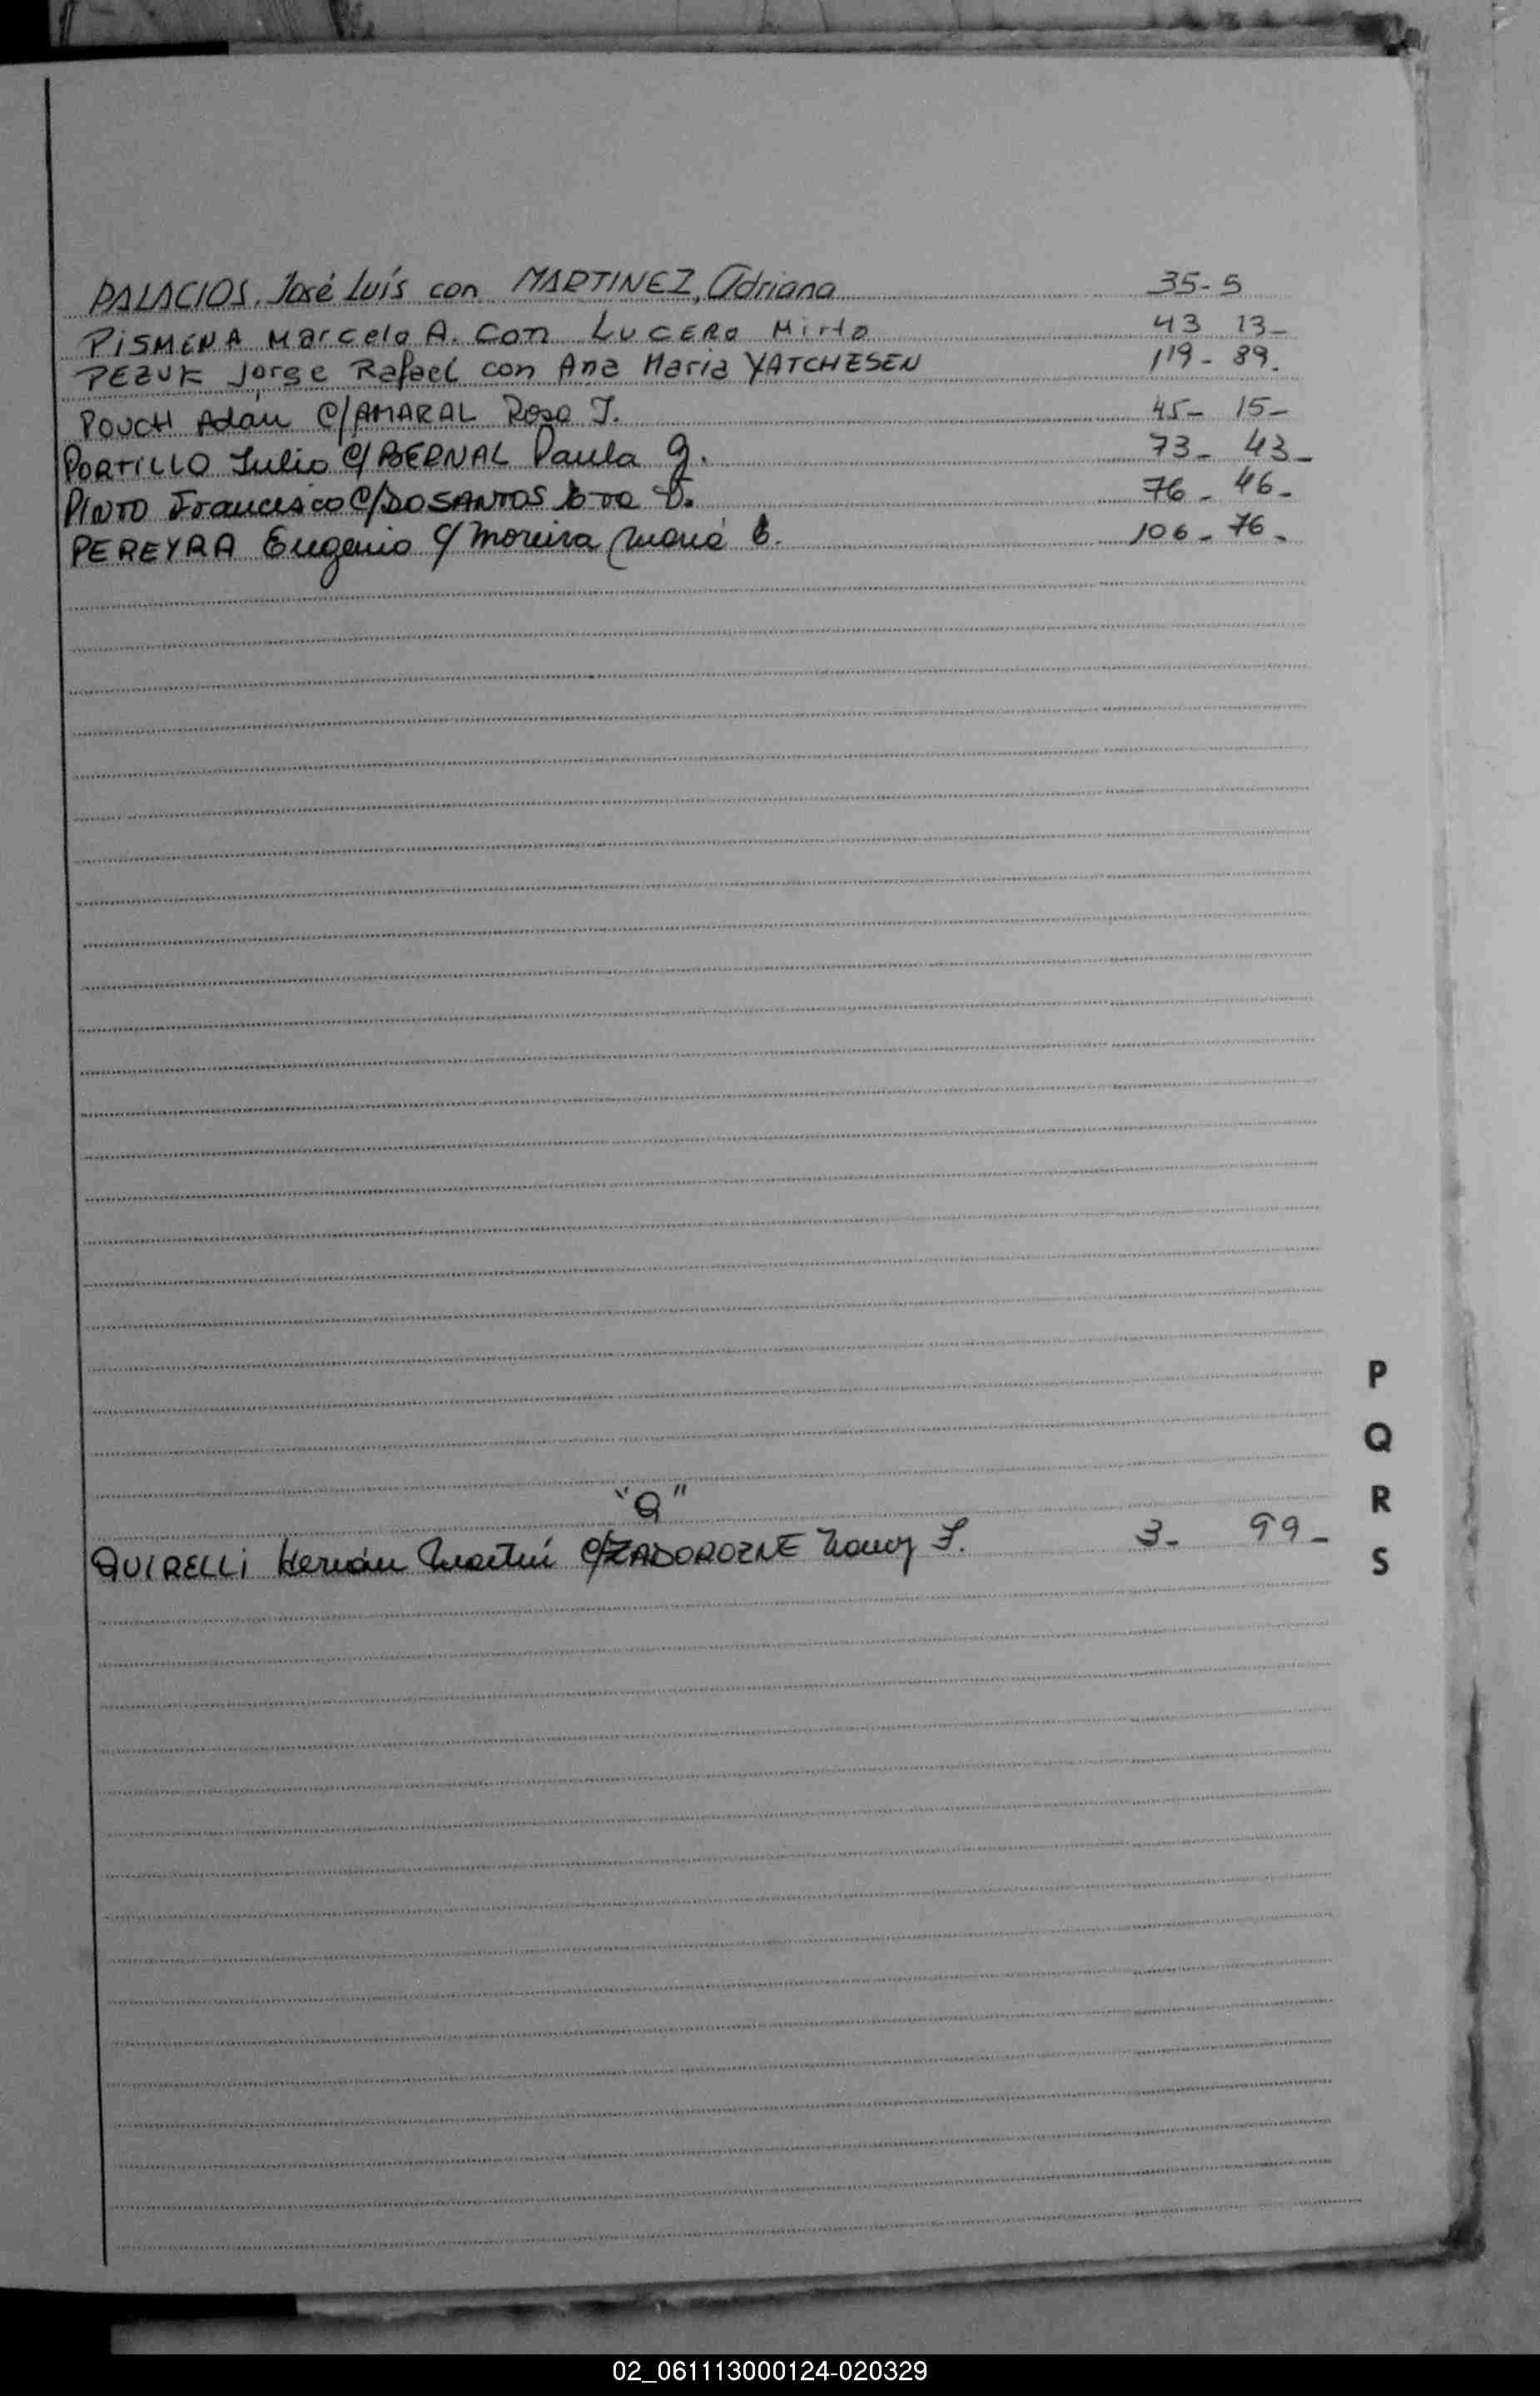 PALACIOS, José Luís con MARTINEZ, Adriana 35-5
PISMENA Marcelo A. con LUCERO Mirta 43 13-
PEZUK Jorge Rafael con Ana Maria YATCHESEN 119- 89.
POUCH Adán C/AMARAL Rosa J. 45- 15-
PORTILLO Julio C/BERNAL Paula G. 73- 43-
PINTO Francisco C/DOSANTOS 76- 46-
PEREYRA Eugenio C/ Moreira María 106- 76-
P
Q
R
S
"Q"
QUIRELLI Hernán Martín C/ZADOROZNE Nancy 3- 99-
02_061113000124-020329